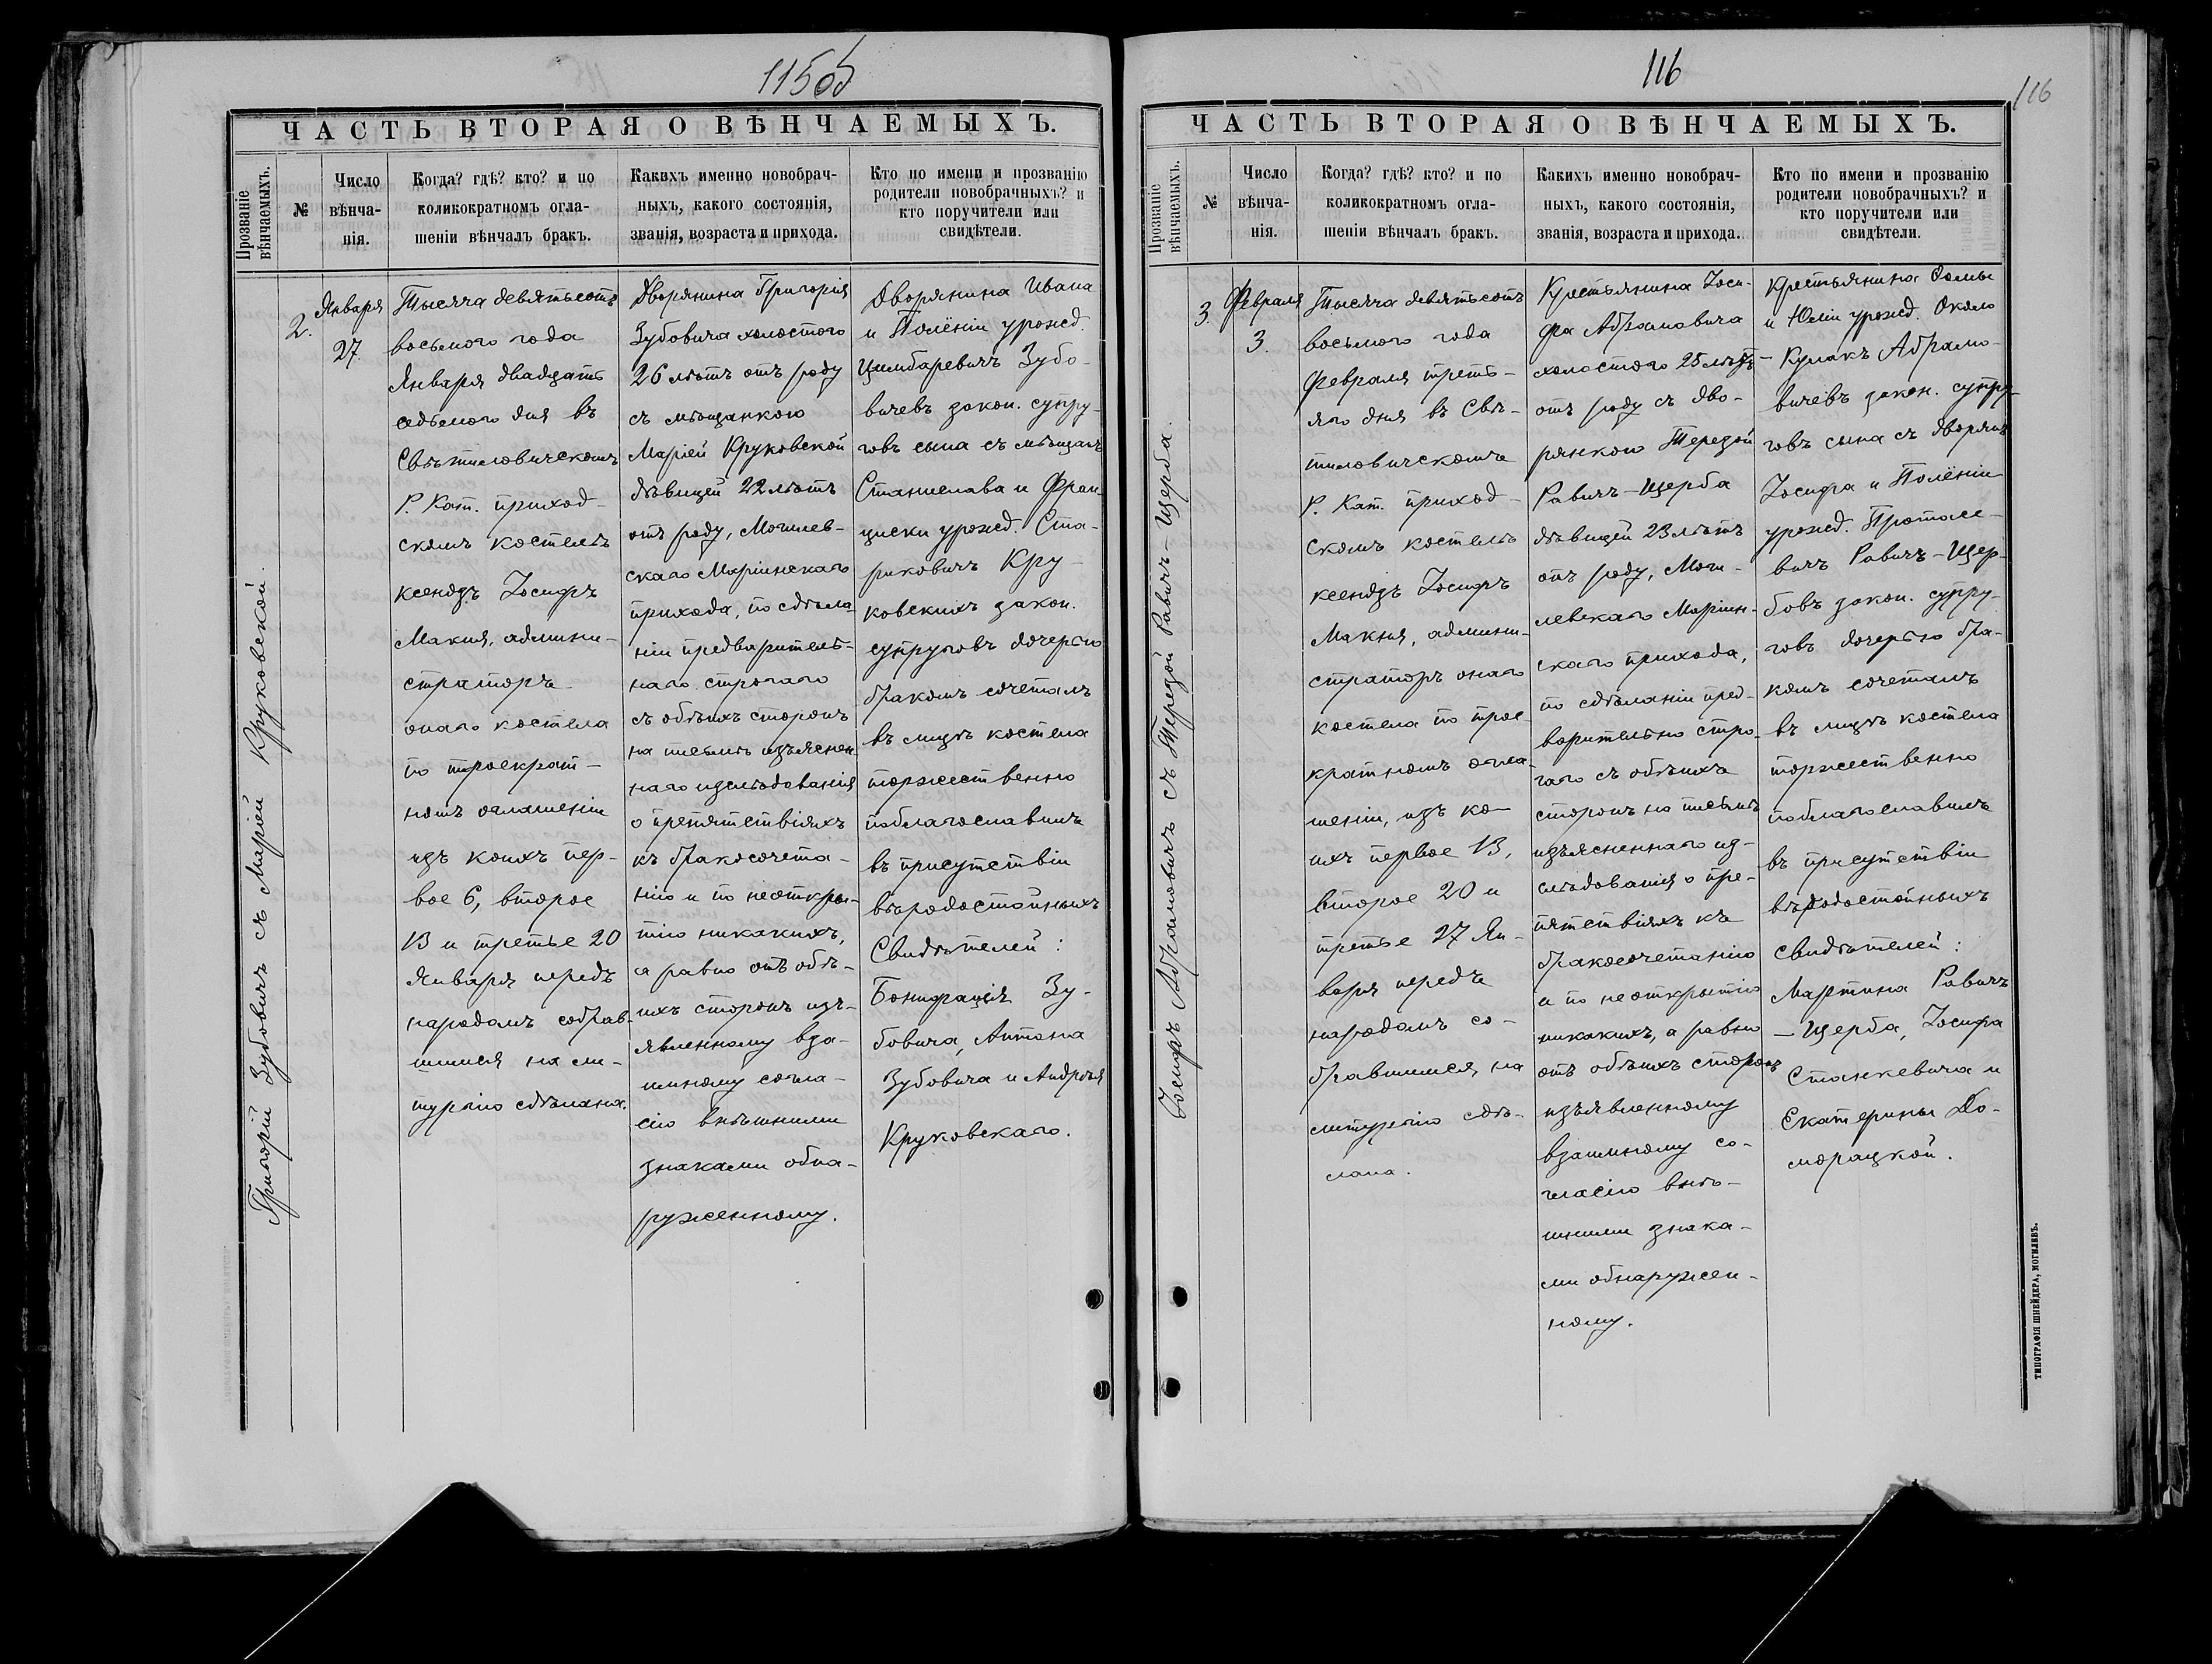 115об
ЧАСТЬ ВТОРАЯ О ВѢНЧАЕМЫХЪ.
Прозваніе
вѣнчаемыхъ.
№
Число
вѣнча-
нія.
Когда? гдѣ? кто? и по
коликократномъ огла-
шеніи вѣнчалъ бракъ.
Какихъ именно новобрач-
ныхъ, какого состоянія,
званія, возраста и прихода.
Кто по имени и прозванію
родители новобрачныхъ? и
кто поручители или
свидѣтели.
Григорій Зубовичъ съ Маріей Круковской.
2.
Января
27.
Тысяча девятьсотъ
восьмого года
Января двадцать
седьмого дня въ
Свѣтиловическомъ
Р. Кат. приход-
скомъ костелѣ
ксендзъ Іосифъ
Макня, админи-
страторъ
онаго костела
по троекрат-
номъ оглашеніи
изъ коихъ пер-
вое 6, второе
13 и третье 20
Января передъ
народомъ собрав-
шимся на ли-
тургію сдѣлана.
Дворянина Григорія
Зубовича холостого
26 лѣтъ отъ роду
съ мѣщанкою
Маріей Круковской
дѣвицей 22 лѣтъ
отъ роду, Могилев-
скаго Маріинскаго
прихода, по сдѣла-
ніи предваритель-
наго строгаго
съ обѣихъ сторонъ
на письмѣ изъяснен
наго изслѣдованія
о препятствіяхъ
къ бракосочета-
нію и по неоткры-
тію никакихъ,
а равно отъ обѣ-
ихъ сторонъ изъ-
явленному вза-
имному согла-
сію внѣшними
знаками обна-
руженному.
Дворянина Ивана
и Полёніи урожд.
Цимбаревичъ Зубо-
вичевъ закон. супру-
говъ сына съ мѣщанъ
Станислава и Фран-
циски урожд. Ста-
риковичъ Кру-
ковскихъ закон.
супруговъ дочерью
бракомъ сочеталъ
въ лицѣ костела
торжественно
поблагословилъ
въ присутствіи
вѣродостойныхъ
Свидѣтелей:
Бонифація Зу-
бовича, Антона
Зубовича и Андрея
Круковскаго.
116
116
ЧАСТЬ ВТОРАЯ О ВѢНЧАЕМЫХЪ.
Прозваніе
вѣнчаемыхъ.
№
Число
вѣнча-
нія.
Когда? гдѣ? кто? и по
коликократномъ огла-
шеніи вѣнчалъ бракъ.
Какихъ именно новобрач-
ныхъ, какого состоянія,
званія, возраста и прихода.
Кто по имени и прозванію
родители новобрачныхъ? и
кто поручители или
свидѣтели.
Іосифъ Абрамовичъ съ Терезой Равичъ-Щерба.
3.
Февраля
3.
Тысяча девятьсотъ
восьмого года
Февраля треть-
яго дня въ Свѣ-
тиловическомъ
Р. Кат. приход-
скомъ костелѣ
ксендзъ Іосифъ
Макня, админи-
страторъ онаго
костела по трое-
кратномъ огла-
шеніи, изъ ко-
ихъ первое 13,
второе 20 и
третье 27 Ян-
варя передъ
народомъ со-
бравшимся, на
литургію сдѣ-
лана.
Крестьянина Іоси-
фа Абрамовича
холостого 25 лѣтъ
отъ роду съ дво-
рянкою Терезой
Равичъ-Щерба
дѣвицей 23 лѣтъ
отъ роду, Моги-
левскаго Маріин-
скаго прихода,
по сдѣланіи пред-
варительно стро-
гаго съ обѣихъ
сторонъ на письмѣ
изъясненнаго из-
слѣдованія о пре-
пятствіяхъ къ
бракосочетанію
и по неоткрытію
никакихъ, а равно
отъ обѣихъ сторонъ
изъявленному
взаимному со-
гласію внѣ-
шними знака-
ми обнаружен-
ному.
Крестьянина Ѳомы
и Юліи урожд. Около
- Кулакъ Абрамо-
вичевъ закон. супру-
говъ сына съ дворянъ
Іосифа и Полёніи
урожд. Протасе-
вичъ Равичъ-Щер-
бовъ закон. супру-
говъ дочерью бра-
комъ сочеталъ
въ лицѣ костела
торжественно
поблагословилъ
въ присутствіи
вѣродостойныхъ
свидѣтелей:
Мартина Равичъ
-Щерба, Іосифа
Станкевича и
Екатерины До-
морацкой.
ТИПОГРАФІЯ ШНЕЙДЕРА, МОГИЛЕВЪ.